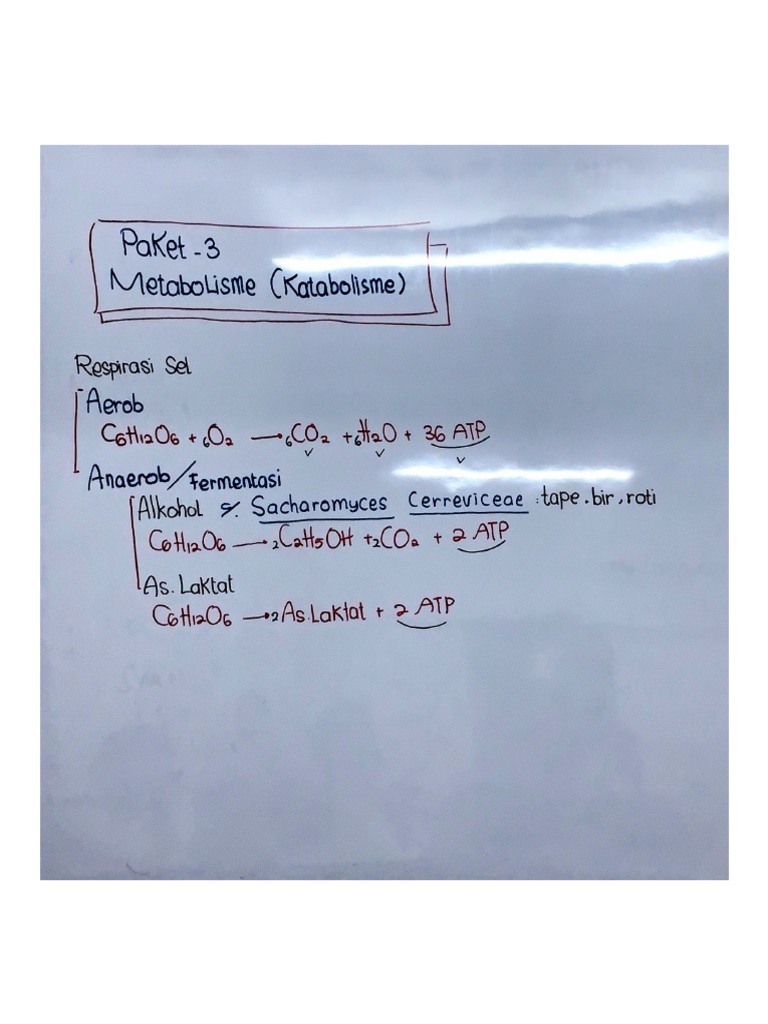 Paket - 3
Metabolisme (Katabolisme)
Respirasi Sel
Aerob
C6H12O6 + 6O2 → 6CO2 + 6H2O + 36 ATP
Anaerob/Fermentasi
Alkohol Sacharomyces Cerreviceae : tape, bir, roti
C6H12O6 → 2C2H5OH + 2CO2 + 2 ATP
As. Laktat
C6H12O6 → 2 As. Laktat + 2 ATP